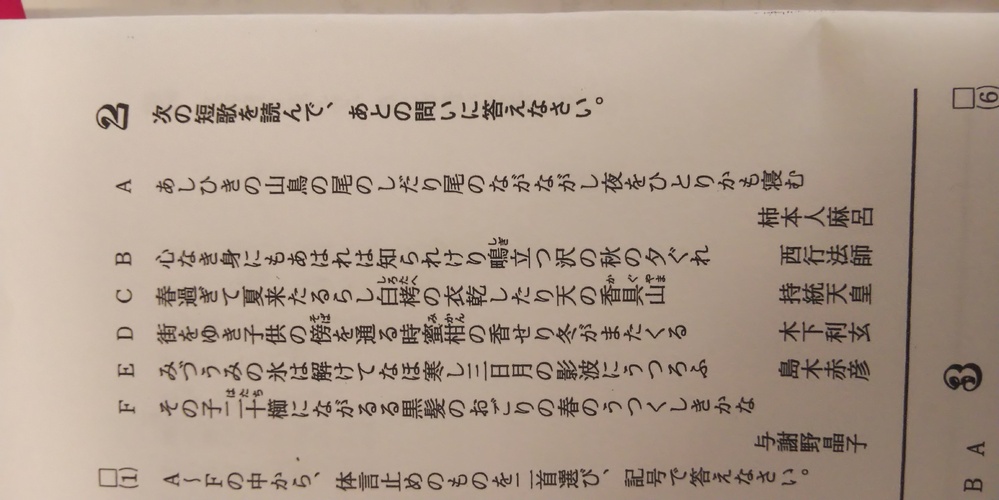 2 次の短歌を読んで、あとの問いに答えなさい。
A あしひきの山鳥の尾のしだり尾のながながし夜をひとりかも寝む
柿本人麻呂
B 心なき身にもあはれは知られけり鴫しぎ立つ沢の秋の夕ぐれ 西行法師
C 春過ぎて夏来たるらし白栲しろたへの衣乾したり天の香具山かぐやま 持統天皇
D 街をゆき子供の傍そばを通る時蜜柑みかんの香せり冬がまたくる 木下利玄
E みづうみの氷は解けてなほ寒し三日月の影波にうつろふ 島木赤彦
F その子二十はたち櫛にながるる黒髪のおごりの春のうつくしきかな
与謝野晶子
□(1) A～Fの中から、体言止めのものを二首選び、記号で答えなさい。
□(6)
3
A
B